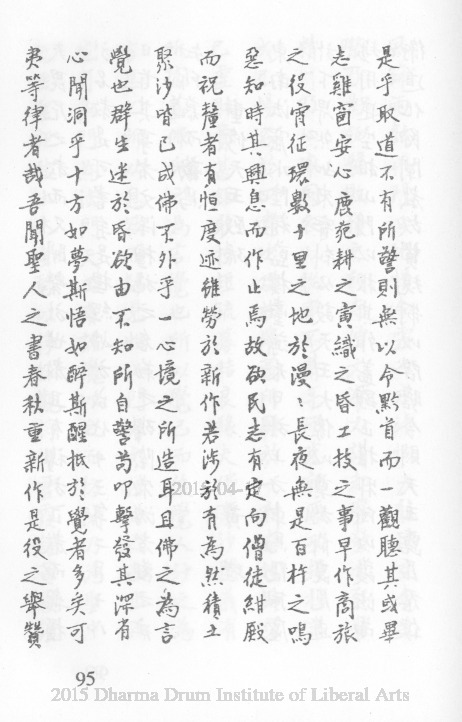 是乎取道不有所警則無以令黔首而一觀聽其或畢
志雞窗安心鹿苑耕之寅織之昏工技之事早作商旅
之役宵征環數十里之地於漫〻長夜無是百杵之鳴
惡知時其興息而作止焉故欲民志有定向僧徒紺殿
而祝釐者有恒度迹雖勞於新作若涉於有為然積土
聚沙皆已成佛了外乎一心境之所造耳且佛之為言
覺也群生迷於昏欲由不知所自警苟叩擊發其深省
心聞洞乎十方如夢斯悟如醉斯醒抵於覺者多矣可
夷等律者哉吾聞聖人之書春秋重新作是役之舉贊
2015-04-
95
2015 Dharma Drum Institute of Liberal Arts